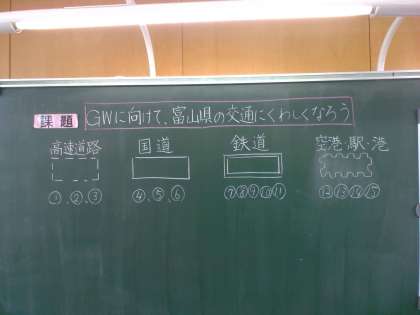 課題 GWに向けて、富山県の交通にくわしくなろう
高速道路 国道 鉄道 空港・駅・港
①、②、③ ④、⑤、⑥ ⑦⑧⑨⑩⑪ ⑫⑬⑭⑮